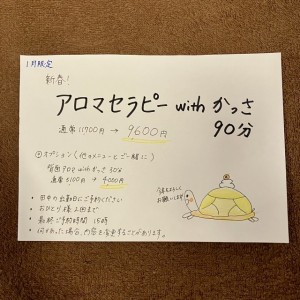 1月限定
新春!
アロマセラピー with かっさ
90分
通常11700円 → 9600円
⊕オプション(他のメニューとご一緒に)
背面アロマ with かっさ 30分
通常5100円 → 4000円
• 田中の出勤日にご予約ください
• おひとり様2回まで
• 最終ご予約時間 15時
• 何かあった場合、内容を変更することがあります。
今年もよろしく
お願いします